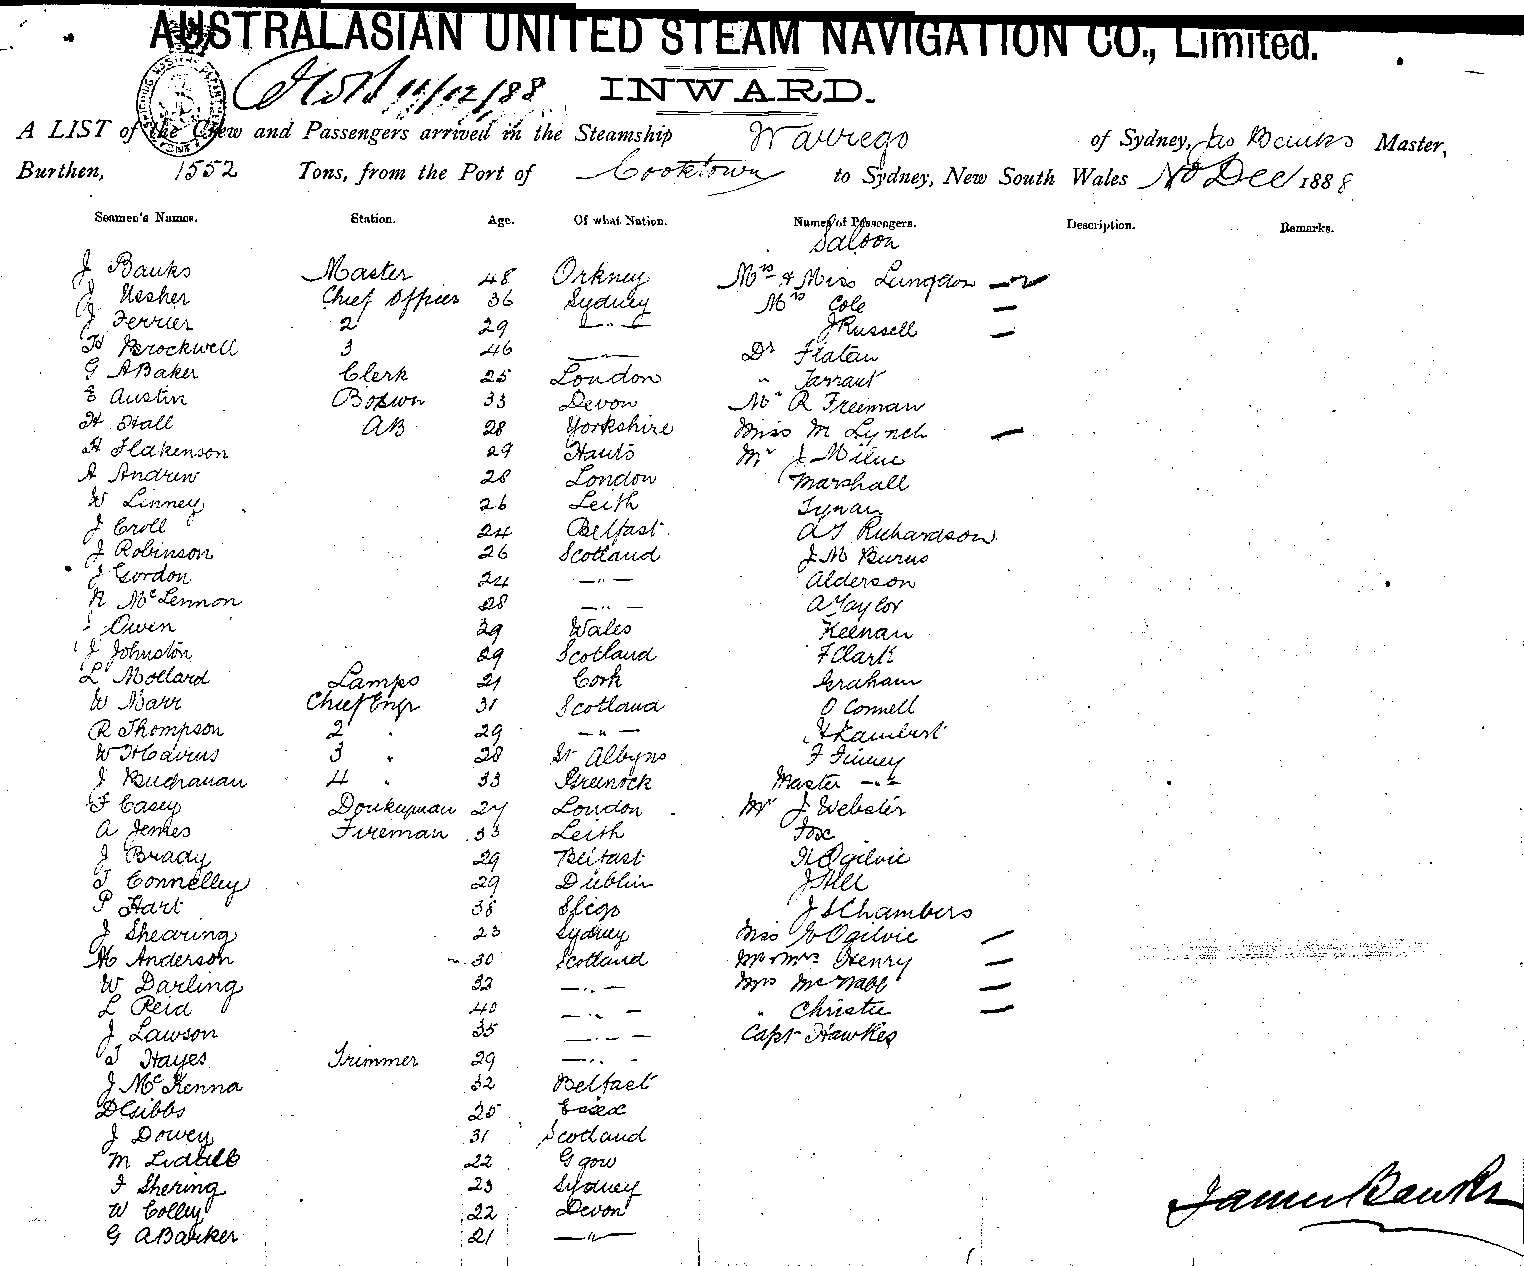 AUSTRALASIAN UNITED STEAM NAVIGATION CO., Limited.
11/12/88 INWARD.
A LIST of the Crew and Passengers arrived in the Steamship Warrego of Sydney, Jas Banks Master,
Burthen, 1552 Tons, from the Port of Cooktown to Sydney, New South Wales Dec 1888
Seamen's Names. Station. Age. Of what Nation. Names of Passengers. Description. Remarks.
Saloon
J Banks Master 48 Orkney Mrs & Miss Langdon
J Ussher Chief Officer 36 Sydney Mrs Cole
J Ferrier 2 29 — " — J Russell
H Brockwell 3 46 — Dr Flatau
G A Baker Clerk 25 London " Tarrant
E Austin Boswn 33 Devon Mr R Freiman
H Hall AB 28 Yorkshire Miss M Lynch
H Flakenson 29 Hants Mr J Milne
A Andrew 28 London Marshall
W Linney 26 Leith Tynan
J Croll 24 Belfast A T Richardson
J Robinson 26 Scotland J M Burns
J Gordon 24 — " — Alderson
N McLennon 28 — " — A Taylor
Owen 29 Wales Keenan
J Johnston 29 Scotland F Clark
L Mollard Lamps 21 Cork Graham
W Marr Chief Engr 31 Scotland O Connell
R Thompson 2 " 29 — " — H Lambert
W 3 " 28 St Albyns F Finney
J Buchanan 4 " 33 Greenock Master — " —
F Casey Donkeyman 27 London Mr J Webster
A Jemes Fireman 33 Leith Fox
J Brady 29 Belfast Ogilvie
T Connelley 29 Dublin J Hill
P Hart 38 Sligo J S Chambers
J Shearing 23 Sydney Miss Ogilvie
M Anderson 30 Scotland Mr & Mrs Henry
W Darling 32 — " — Mrs McNabb
L Reid 40 — " — " Christie
J Lawson 35 — " — Capt Hawkes
T Hayes Trimmer 29 — " —
J McKenna 32 Belfast
D Gibbs 25 Essex
J Dowey 31 Scotland
M Liddell 22 Ggow
F Shering 23 Sydney
W Colley 22 Devon
G A Barker 21 — " —
James Banks